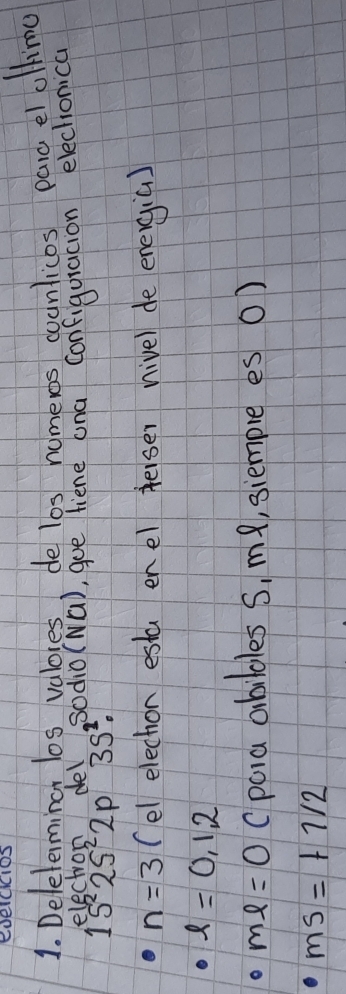 ejercicios
1. Deleterminar los valores de los numeros cuanticos para el ultimo
electron del sodio (Na), que tiene una configuracion electronica
1S² 2S² 2p 3S¹.
• n = 3 (el electron esta en el terser nivel de energia)
• l = 0,1,2
• ml = 0 (para orbitales S, ml, siempre es 0)
• ms = + 1/2